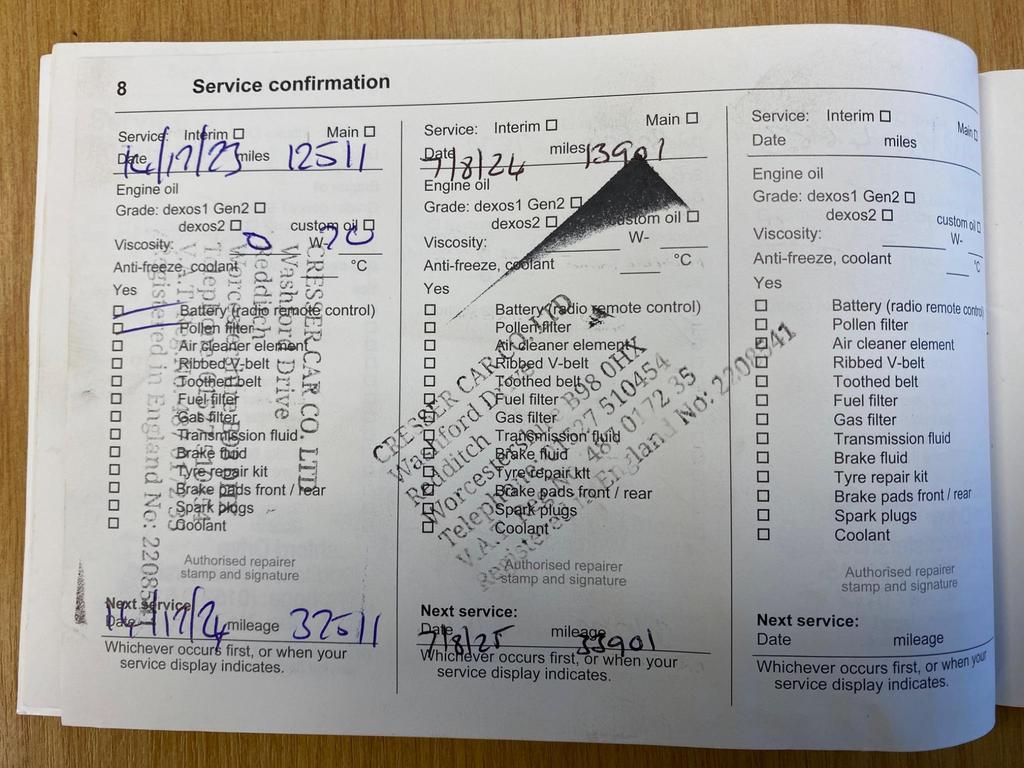 8 Service confirmation
Service: Interim Main
Date 14/12/23 miles 12511
Engine oil
Grade: dexos1 Gen2
dexos2 custom oil
Viscosity: 0 W- 20
Anti-freeze, coolant °C
Yes
Battery (radio remote control)
Pollen filter
Air cleaner element
Ribbed V-belt
Toothed belt
Fuel filter
Gas filter
Transmission fluid
Brake fluid
Tyre repair kit
Brake pads front / rear
Spark plugs
Coolant
CRESSER CAR CO. LTD
Washford Drive
Redditch
Authorised repairer
stamp and signature
Next service:
Date 14/12/24 mileage 32511
Whichever occurs first, or when your
service display indicates.
Service: Interim Main
Date 7/8/24 miles 13901
Engine oil
Grade: dexos1 Gen2
dexos2 custom oil
Viscosity: W-
Anti-freeze, coolant °C
Yes
Battery (radio remote control)
Pollen filter
Air cleaner element
Ribbed V-belt
Toothed belt
Fuel filter
Gas filter
Transmission fluid
Brake fluid
Tyre repair kit
Brake pads front / rear
Spark plugs
Coolant
CRESSER CAR CO. LTD
Washford Drive
Redditch
Worcestershire B98 0HX
Telephone: 01527 510454
V.A.T. Reg No: 487 0172 35
Registered in England No: 2208541
Authorised repairer
stamp and signature
Next service:
Date 7/8/25 mileage 33901
Whichever occurs first, or when your
service display indicates.
Service: Interim Main
Date miles
Engine oil
Grade: dexos1 Gen2
dexos2 custom oil
Viscosity: W-
Anti-freeze, coolant °C
Yes
Battery (radio remote control)
Pollen filter
Air cleaner element
Ribbed V-belt
Toothed belt
Fuel filter
Gas filter
Transmission fluid
Brake fluid
Tyre repair kit
Brake pads front / rear
Spark plugs
Coolant
Authorised repairer
stamp and signature
Next service:
Date mileage
Whichever occurs first, or when your
service display indicates.